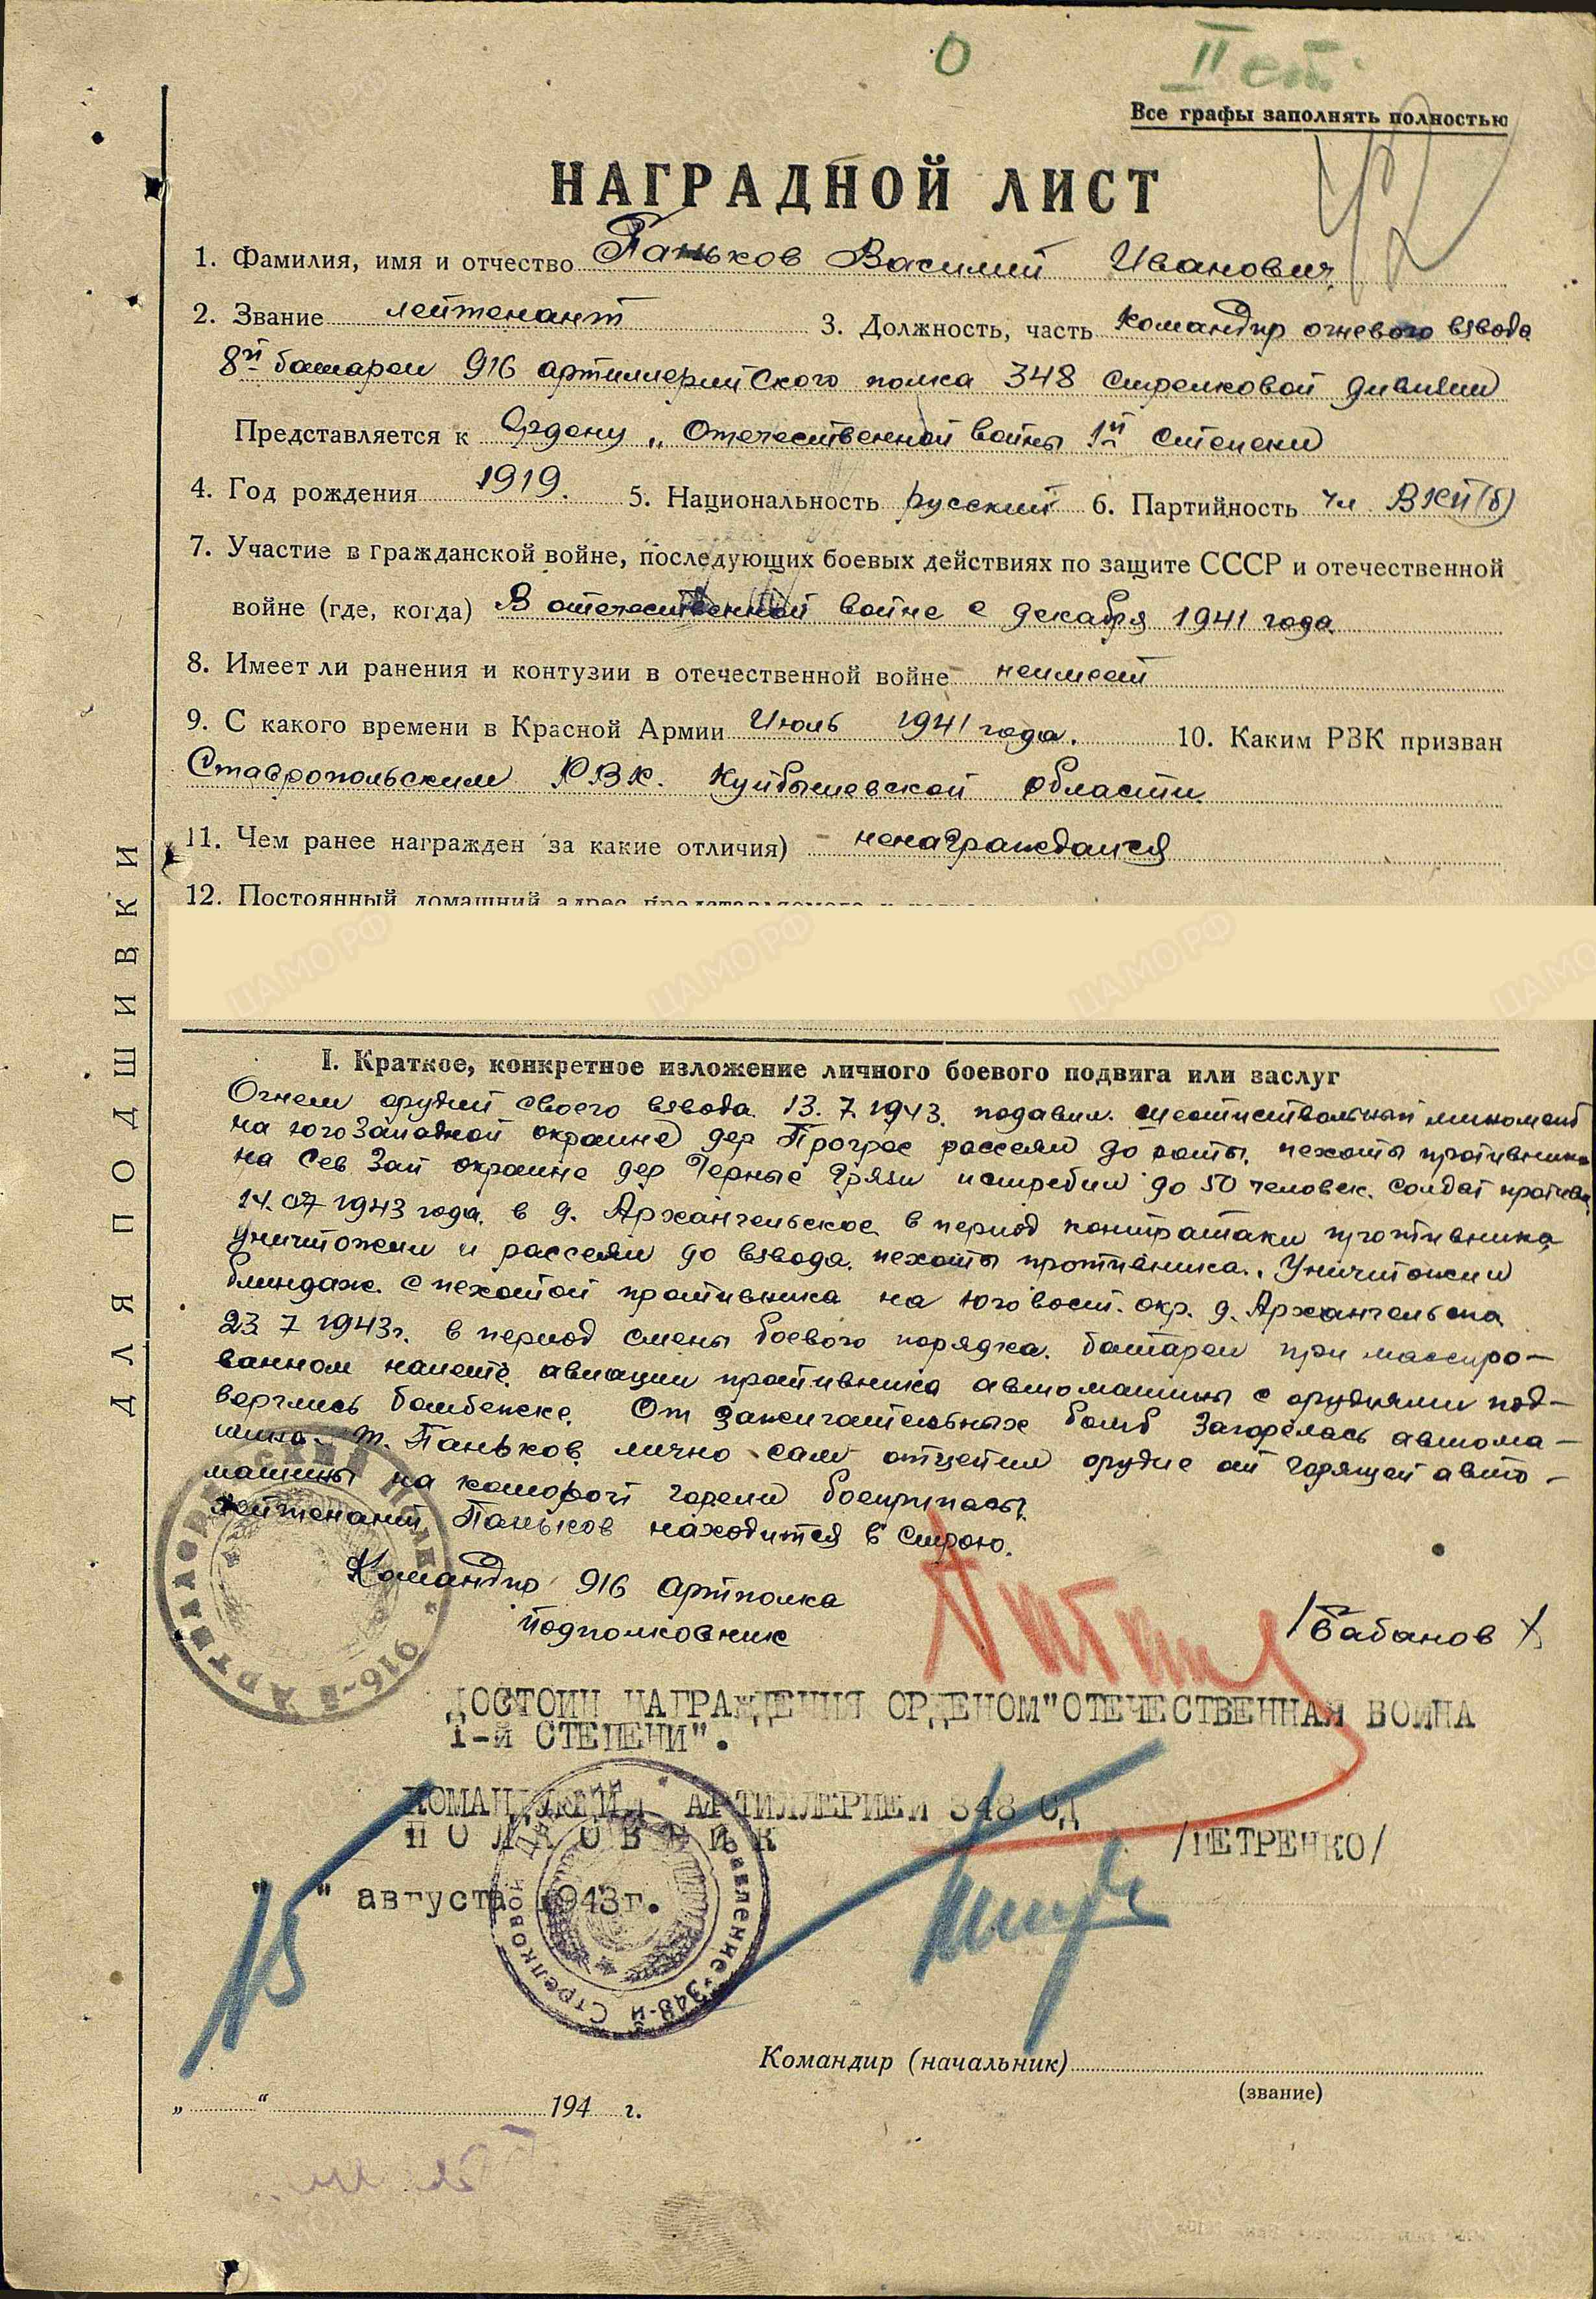 О
II ст.
Все графы заполнять полностью
42
НАГРАДНОЙ ЛИСТ
1. Фамилия, имя и отчество Паньков Василий Иванович
2. Звание лейтенант 3. Должность, часть командир огневого взвода
8й батареи 916 артиллерийского полка 348 стрелковой дивизии
Представляется к Ордену „Отечественной войны 1й степени
4. Год рождения 1919. 5. Национальность русский 6. Партийность чл ВКП(б)
7. Участие в гражданской войне, последующих боевых действиях по защите СССР и отечественной
войне (где, когда) В отечественной войне с декабря 1941 года.
8. Имеет ли ранения и контузии в отечественной войне неимеет
9. С какого времени в Красной Армии Июль 1941 года. 10. Каким РВК призван
Ставропольским РВК. Куйбышевской области.
11. Чем ранее награжден за какие отличия) ненаграждался
12. Постоянный домашний адрес представляемого к
I. Краткое, конкретное изложение личного боевого подвига или заслуг
Огнем орудий своего взвода 13. 7. 1943. подавил шестиствольный миномет
на югозападной окраине дер Програс рассеял до роты пехоты противника
на сев зап окраине дер Черные Грязи истребил до 50 человек. солдат против.
14. 07 1943 года. в д. Архангельское в период контратаки противника
уничтожил и рассеял до взвода. пехоты противника. Уничтожил
блиндаж с пехотой противника на юговост. окр. д. Архангельска
23 7 1943г. в период смены боевого порядка. батареи при массиро-
ванном налете авиации противника автомашины с орудиями под-
верглись бомбежке. От зажигательных бомб загорелась автома-
шина. т. Паньков лично сам отцепил орудие от горящей авто-
машины на которой горели боеприпасы.
Лейтенант Паньков находится в строю.
Командир 916 артполка
подполковник /Бабанов/
ДОСТОИН НАГРАЖДЕНИЯ ОРДЕНОМ"ОТЕЧЕСТВЕННАЯ ВОЙНА
1-Й СТЕПЕНИ".
КОМАНДУЮЩИЙ АРТИЛЛЕРИЕЙ 348 СД
ПОЛКОВНИК /ПЕТРЕНКО/
"15" августа 1943г.
Командир (начальник)
(звание)
„ “ 194 г.
ДЛЯ ПОДШИВКИ
916-й Артиллерийский Полк
Управление 348-й Стрелковой Дивизии
ЦАМО РФ